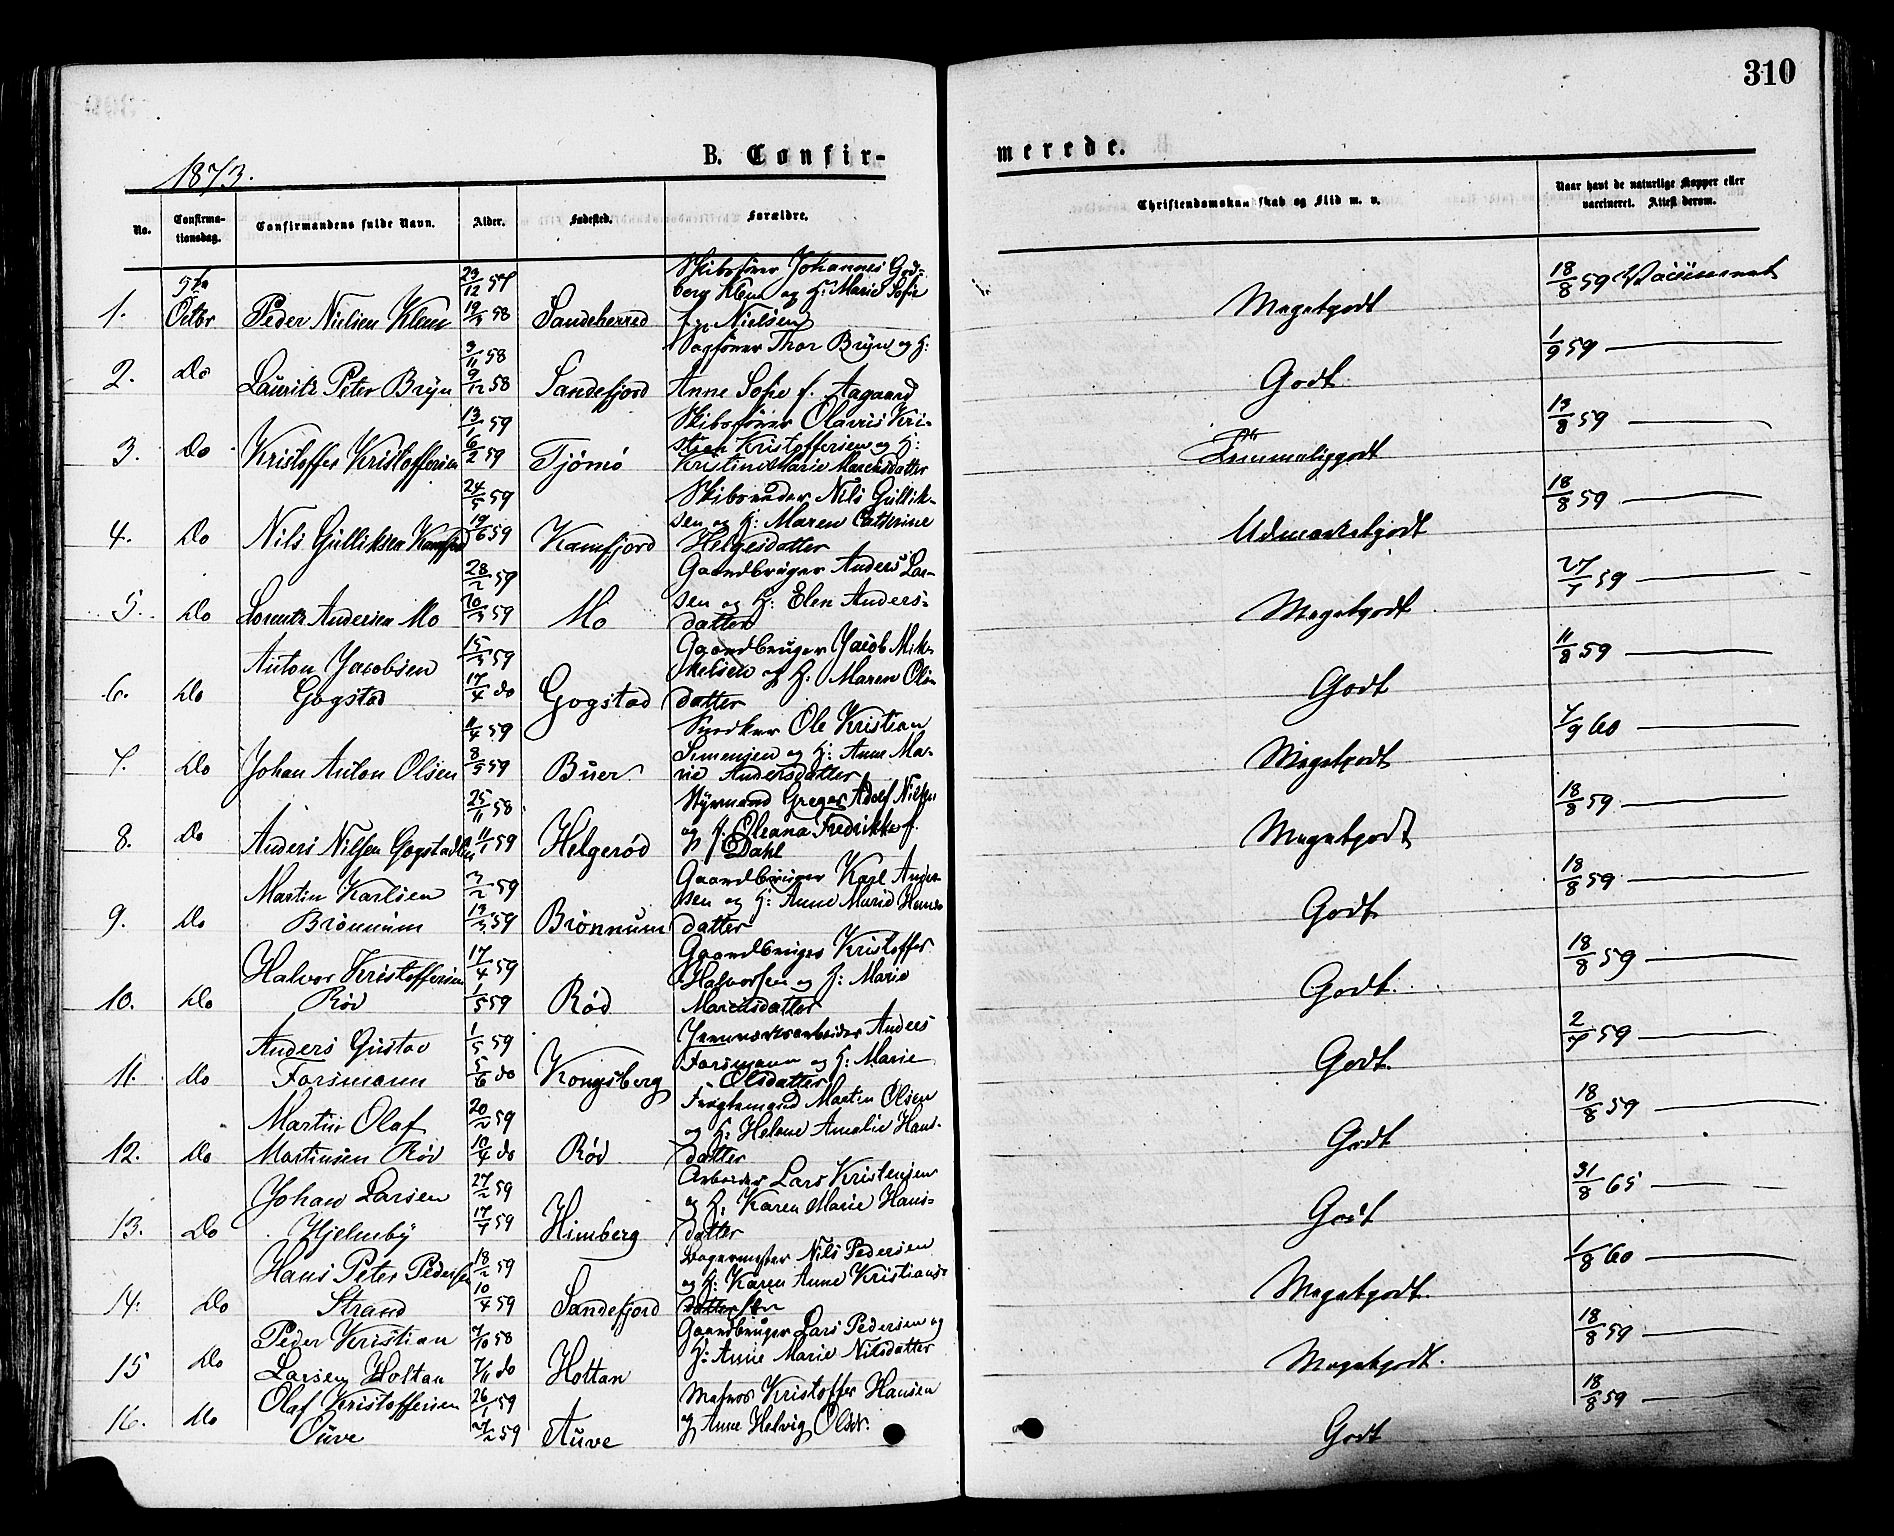 310
1873.
B. Confir-
merede.
No.
Confirma-
tionsdag.
Confirmandens fulde Navn.
Alder.
Fødested.
Forældre.
Christendomskundskab og Flid m. v.
Naar havt de naturlige Kopper eller
vaccineret. Attest derom.
1. 5te Octbr Peder Nielsen Klem 23/12 57 19/3 58 Sandeherred
Skibsfører Johannes God-
berg Klem og H: Marie Sofie
f. Nielsen
Megetgodt 18/8 59 Vaccineret
2. Do Lauritz Peter Bryn 3/11 58 9/12 58 Sandefjord
Sagfører Thor Bryn og H:
Anne Sofie f. Aagaard
Godt 1/9 59
3. Do Kristoffer Kristoffersen 13/1 59 6/2 59 Tjömö
Skibsfører Olavus Kri-
stian Kristoffersen og H:
Kristine Marie Marcusdatter
Temmeliggodt 13/8 59
4. Do Nils Gulliksen Kamfjord 24/5 59 19/6 59 Kamfjord
Skibsreder Nils Gullik-
sen og H: Maren Cathrine
Helgesdatter
Udmærketgodt 18/8 59
5. Do Lorentz Andersen Mo 28/2 59 20/3 59 Mo
Gaardbruger Anders Lar-
sen og H: Elen Anders-
datter
Megetgodt 27/7 59
6. Do Anton Jacobsen
Gogstad 15/3 59 17/4 do Gogstad
Gaardbruger Jacob Mik-
kelsen og H: Maren Ols-
datter
Godt 11/8 59
7. Do Johan Anton Olsen 11/4 59 8/5 59 Buer
Snedker Ole Kristian
Simensen og H: Anne Ma-
rie Andersdatter
Megetgodt 7/9 60
8. Do Anders Nilsen Gogstadlien 25/11 58 11/1 59 Helgerød
Styrmand Greger Adolf Nilsen
og H. Oleana Fredrikke f.
Dahl
Megetgodt 18/8 59
9. Do Martin Karlsen
Brönnum 3/2 59 13/3 59 Brönnum
Gaardbruger Karl Ander-
sen og H: Anne Marie Hans-
datter
Godt 18/8 59
10. Do Halvor Kristoffersen
Rød 17/4 59 1/5 59 Rød
Gaardbruger Kristoffer
Halvorsen og H: Marie
Marcusdatter
Godt 18/8 59
11. Do Anders Gustav
Forsmann 1/5 59 5/6 do Kongsberg
Jernverksarbeider Anders
Forsmann og H: Marie
Olsdatter
Godt 2/7 59
12. Do Martin Olaf
Martinsen Rød 20/2 59 10/4 do Rød
Fragtemand Martin Olsen
og H: Helene Amalie Hans-
datter
Godt 18/8 59
13. Do Johan Larsen
Hjelmby 27/2 59 17/7 59 Himberg
Arbeider Lars Kristensen
og H. Karen Marie Hans-
datter
Godt 31/8 65
14. Do Hans Peter Pedersen
Strand 18/2 59 10/4 59 Sandefjord
Bagermester Nils Pedersen
og H: Karen Anne Kristians-
datter
Megetgodt 1/8 60
15 Do Peder Kristian
Larsen Holtan 7/10 58 7/11 do Holtan
Gaardbruger Lars Pedersen og
H: Anne Marie Nilsdatter
Megetgodt. 18/8 59
16. Do Olaf Kristoffersen
Ouve 26/1 59 27/2 59 Auve
Matros Kristoffer Hansen
og Anne Helvig Olsdr:
Godt 18/8 59